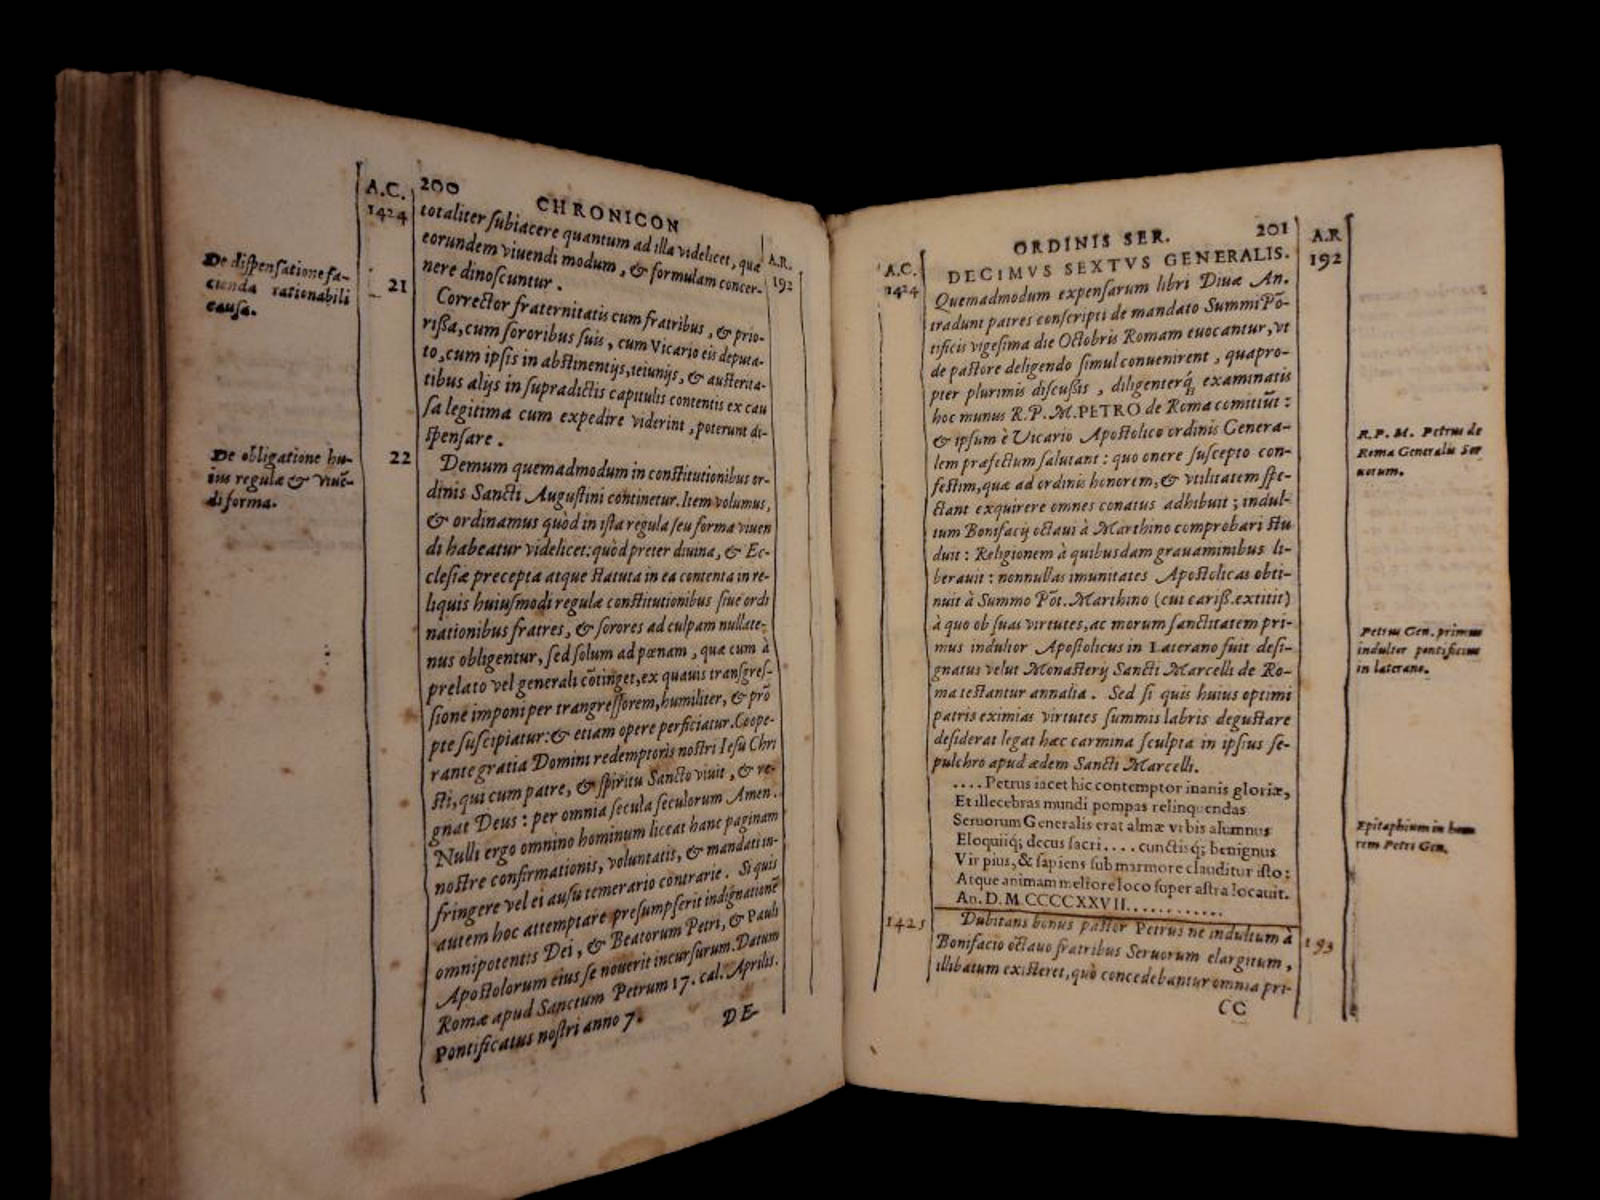 A.C. 200 CHRONICON
1424
A.R.
192
totaliter subiacere quantum ad illa videlicet, quæ
eorundem viuendi modum, & formulam concer-
nere dinoscuntur.
De dispensatione fa-
cienda rationabili
causa.
21
Corrector fraternitatis cum fratribus, & prio-
rissa, cum sororibus suis, cum Vicario eis deputa-
to, cum ipsis in abstinentijs, ieiunijs, & austerita-
tibus alijs in supradictis capitulis contentis ex cau
sa legitima cum expedire viderint, poterunt di-
spensare.
De obligatione hu-
ius regulæ & viuẽ-
di forma.
22
Demum quemadmodum in constitutionibus or-
dinis Sancti Augustini continetur. Item volumus,
& ordinamus quòd in ista regula seu forma viuen
di habeatur videlicet: quòd preter diuina, & Ec-
clesiæ precepta atque statuta in ea contenta in re-
liquis huiusmodi regulæ constitutionibus siue ordi
nationibus fratres, & sorores ad culpam nullate-
nus obligentur, sed solum ad pœnam, quæ cum à
prelato vel generali cõtinget, ex quauis transgres-
sione imponi per trangressorem, humiliter, & prõ
pte suscipiatur: & etiam opere perficiatur. Coope-
rante gratia Domini redemptoris nostri Iesù Chri
sti, qui cum patre, & spiritu Sancto viuit, & re-
gnat Deus: per omnia secula seculorum Amen.
Nulli ergo omnino hominum liceat hanc paginam
nostre confirmationis, voluntatis, & mandati in-
fringere vel ei ausu temerario contrarie. Si quis
autem hoc attemptare presumpserit indignationẽ
omnipotentis Dei, & Beatorum Petri, & Pauli
Apostolorum eius se nouerit incursurum. Datum
Romæ apud Sanctum Petrum 17. cal. Aprilis.
Pontificatus nostri anno 7.
DE-
ORDINIS SER. 201
A.C.
1424
A.R
192
DECIMVS SEXTVS GENERALIS.
Quemadmodum expensarum libri Diuæ An.
tradunt patres conscripti de mandato Summi Põ-
tificis vigesima die Octobris Romam euocantur, vt
de pastore deligendo simul conuenirent, quapro-
pter plurimis discussis, diligenterq́; examinatis
hoc munus R.P.M.PETRO de Roma comittũt:
& ipsum è Vicario Apostolico ordinis Genera-
lem præfectum salutant: quo onere suscepto con-
festim, quæ ad ordinis honorem, & vtilitatem spe-
ctant exquirere omnes conatus adhibuit; indul-
tum Bonifacij octaui à Marthino comprobari stu
duit: Religionem à quibusdam grauaminibus li-
berauit: nonnullas imunitates Apostolicas obti-
nuit à Summo Põt. Marthino (cui cariss. extitit)
à quo ob suas virtutes, ac morum sanctitatem pri-
mus indultor Apostolicus in Laterano fuit desi-
gnatus velut Monasterij Sancti Marcelli de Ro-
ma testantur annalia. Sed si quis huius optimi
patris eximias virtutes summis labris degustare
desiderat legat hæc carmina sculpta in ipsius se-
pulchro apud ædem Sancti Marcelli.
....Petrus iacet hic contemptor inanis gloriæ,
Et illecebras mundi pompas relinquendas
Seruorum Generalis erat almæ vrbis alumnus
Eloquiiq; decus sacri.... cunctisq; benignus
Vir pius, & sapiens sub marmore clauditur isto:
Atque animam meliore loco super astra locauit.
An. D. M CCCCXXVII............
R.P. M. Petrus de
Roma Generalis Ser
uorum.
Petrus Gen. primus
indultor pontificius
in laterano.
Epitaphium in hono
rem Petri Gen.
1425
193
Dubitans bonus pastor Petrus ne indultum à
Bonifacio octauo fratribus Seruorum elargitum,
illibatum existeret, quò concedebantur omnia pri-
CC